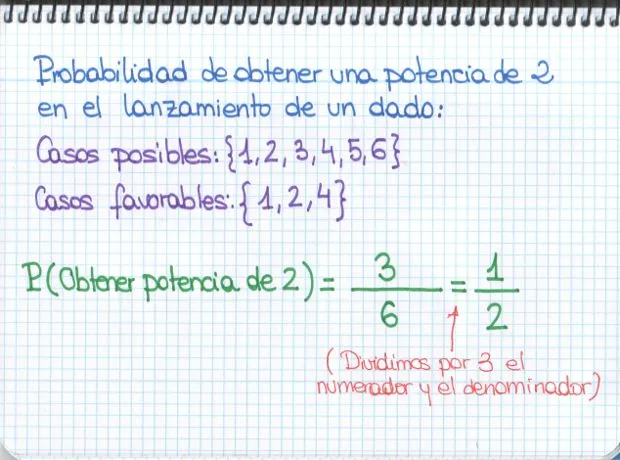 Probabilidad de obtener una potencia de 2
en el lanzamiento de un dado:
Casos posibles: {1, 2, 3, 4, 5, 6}
Casos favorables: {1, 2, 4}
P(Obtener potencia de 2) = 3/6 = 1/2
(Dividimos por 3 el
numerador y el denominador)